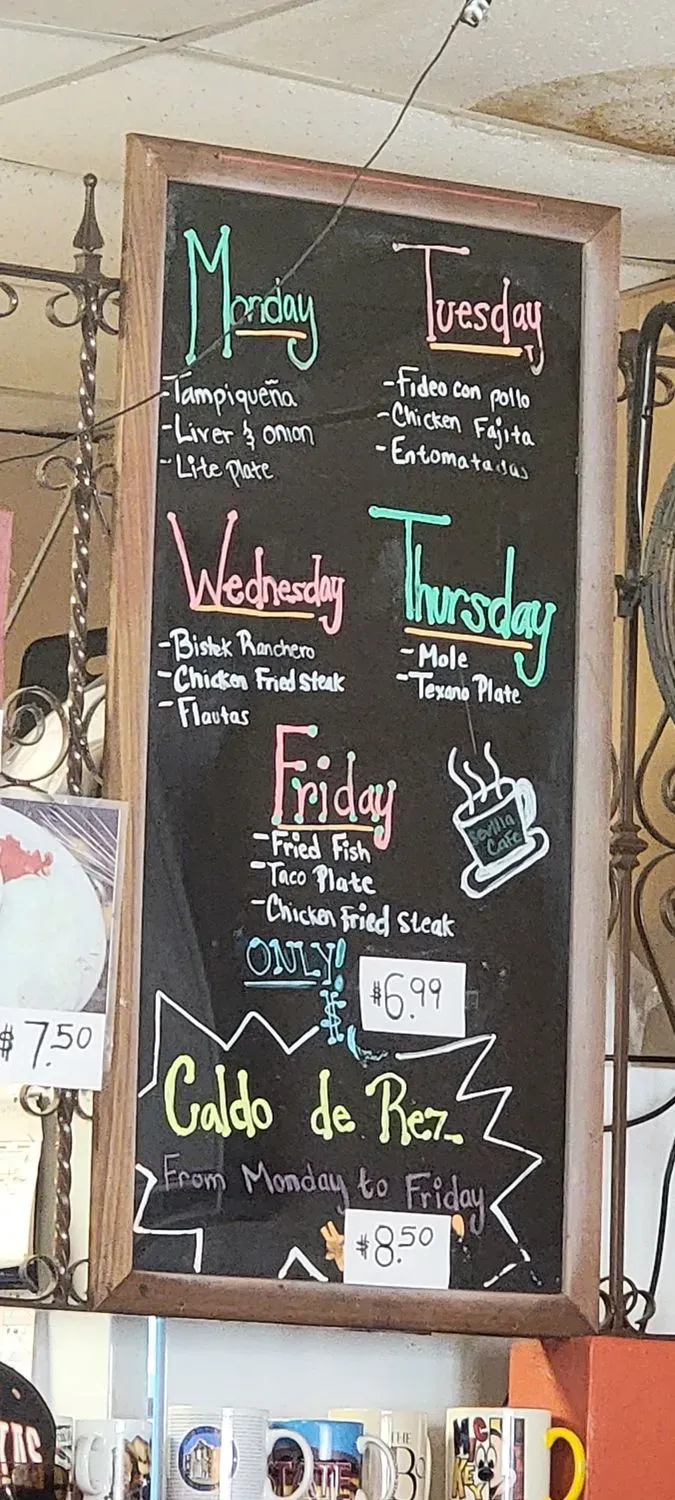 Monday
-Tampiqueña
-Liver & onion
-Lite Plate
Tuesday
-Fideo con pollo
-Chicken Fajita
-Entomatadas
Wednesday
-Bistek Ranchero
-Chicken Fried Steak
-Flautas
Thursday
-Mole
-Texano Plate
Friday
-Fried Fish
-Taco Plate
-Chicken Fried Steak
Sevilla
Cafe
ONLY!
$6.99
$
$7.50
Caldo de Rez
From Monday to Friday
$8.50
THE
STATE
MIC
KEY